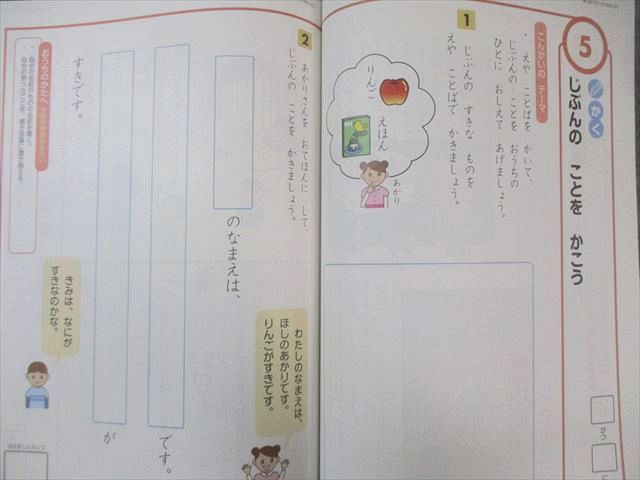 5
かく
じぶんの ことを かこう
がつ
こんかいの テーマ
・えや ことばを かいて、
じぶんの ことを おうちの
ひとに おしえて あげましょう。
1
じぶんの すきな ものを
えや ことばで かきましょう。
りんご
えほん
あかり
2
あかりさんを おてほんに して、
じぶんの ことを かきましょう。
わたしのなまえは、
ほしのあかりです。
りんごがすきです。
のなまえは、
です。
が
すきです。
きみは、なにが
すきなのかな。
おうちのかたへ